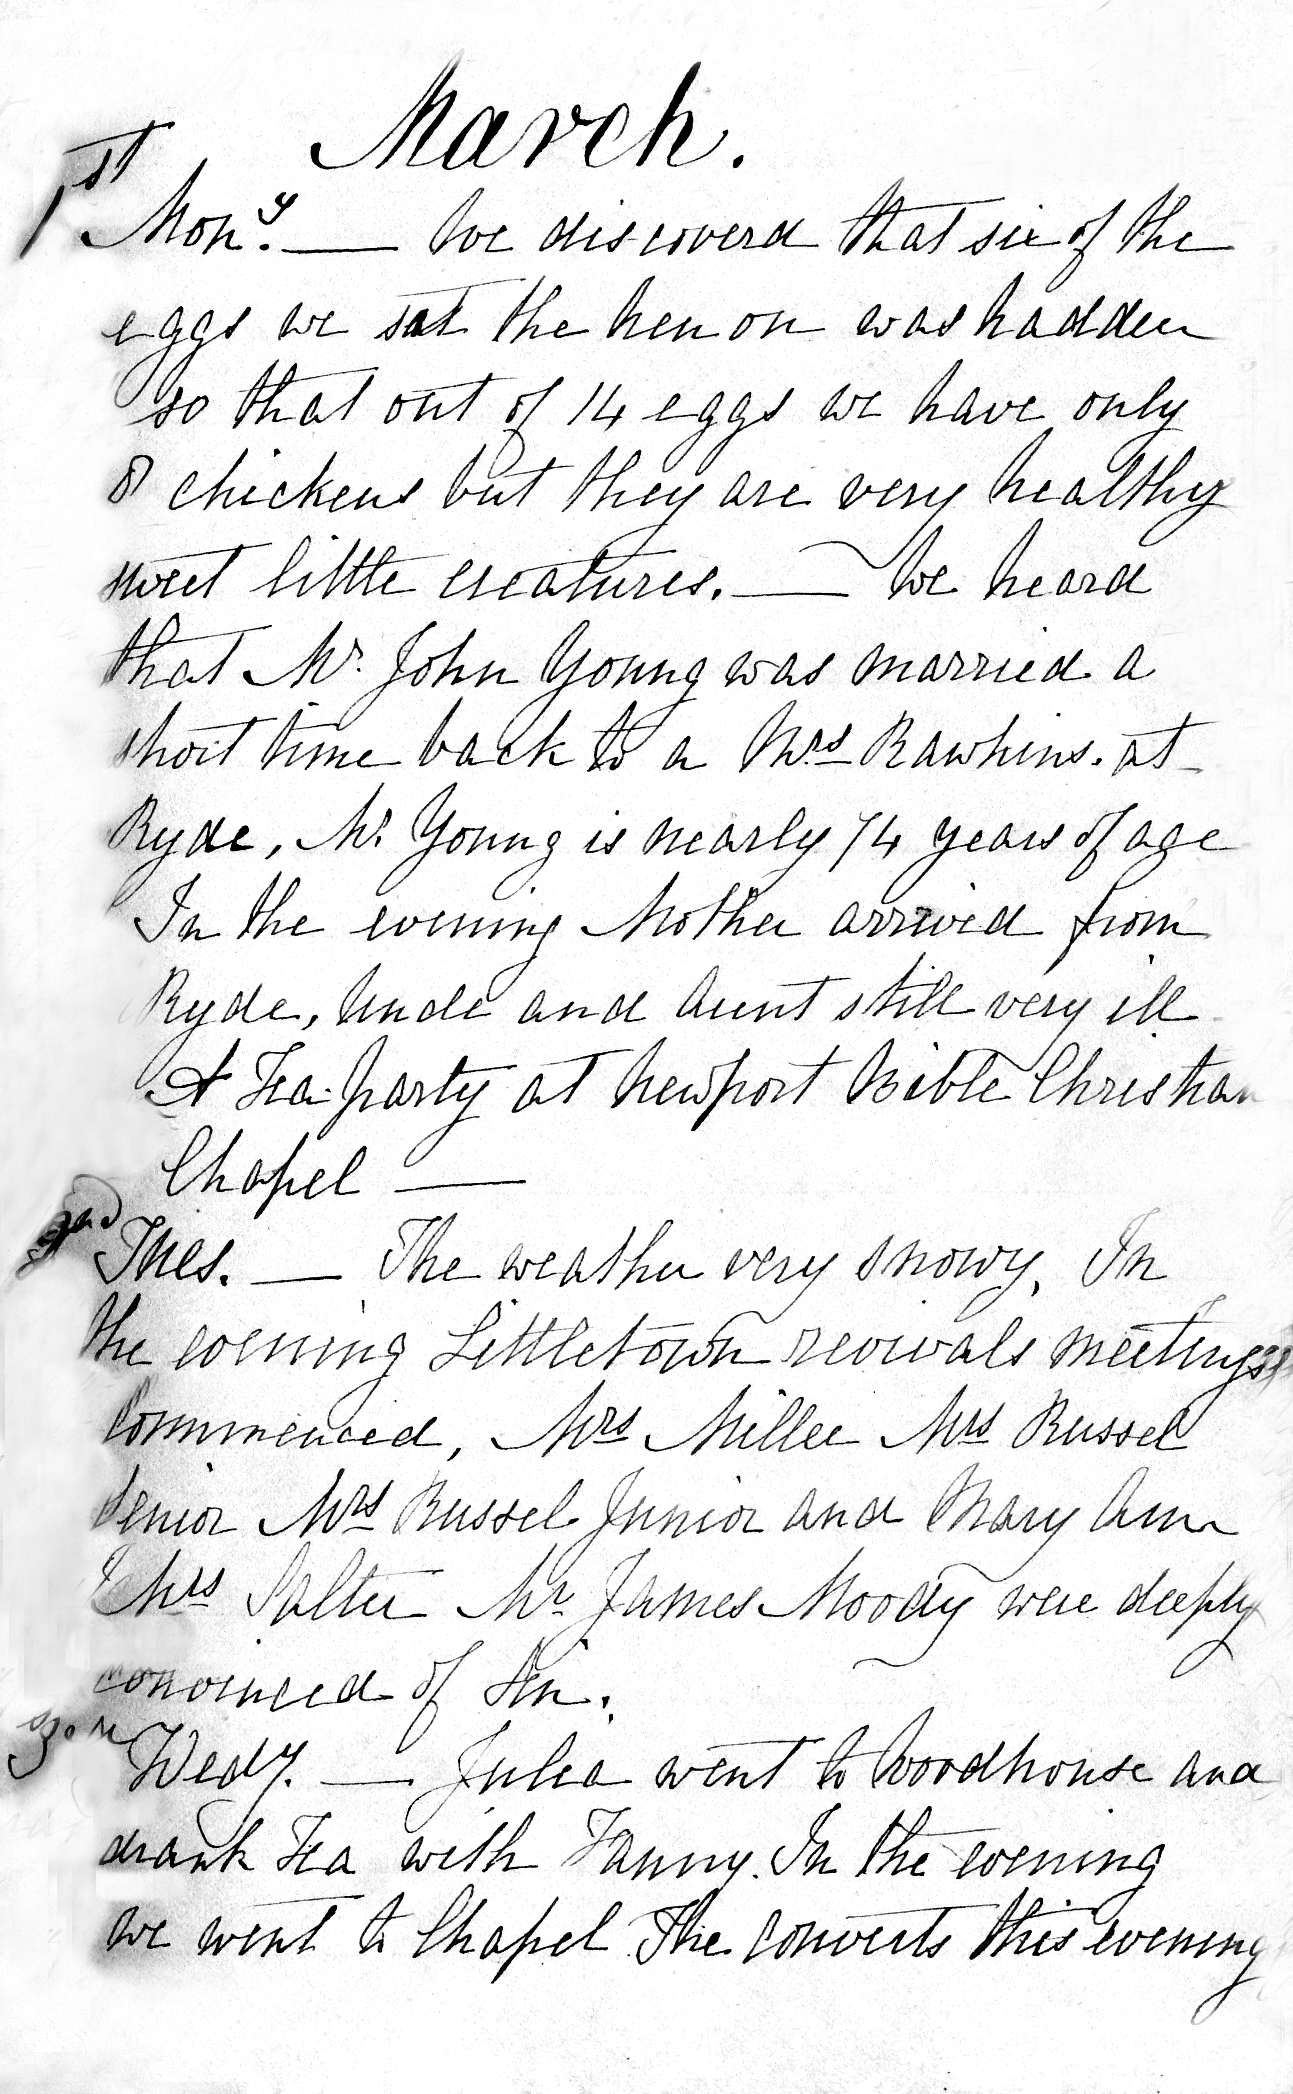 March.
1st
Mony. — We discoverd that six of the
eggs we sat the hen on was hadden
so that out of 14 eggs we have only
8 chickens but they are very healthy
sweet little creatures. — We heard
that Mr. John Young was married a
short time back to a Mrs Rawkins. at
Ryde, Mr. Young is nearly 74 years of age
In the evening Mother arrived from
Ryde, Uncle and Aunt still very ill
A Tea party at Newport Bible Christian
Chapel —
2nd
Tues. — The weather very snowy, In
the evening Littletown revivals meetings
Commenced, Mrs Miller Mrs Russel
Senior Mrs Russel Junior and Mary Ann
Mrs Salter Mr. James Moody were deeply
convinced of Sin.
3
Wedy. — Julia went to Woodhouse and
drank Tea with Fanny. In the evening
we went to Chapel The converts this evening